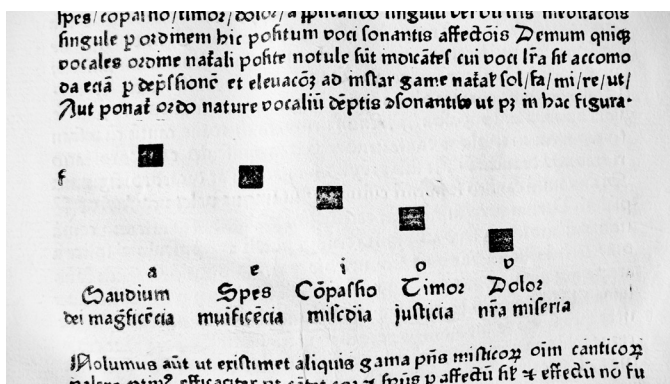 spes/cōpassio/timor/dolor/a
singule p ordinem hic positum voci sonantis affectōis Demum qniqꝫ
vocales ordine nat̄ali posite notule sūt īndicātes cui voci lr̄a sit accomo
da eciā p dep̄ssionē et eleuacōꝫ ad instar game nat̄al̄ sol/fa/mi/re/ut/
Aut ponat̄ ordo nature vocaliū dēptis ↄsonantibꝰ ut pꝫ in hac figura.
f
a e i o v
Gaudium Spes Cōpassio Timor Dolor
dei mag̅ficēcia muificēcia misc̅dia justicia nr̄a miseria
Nolumus aūt ut existimet aliquis gama pn̄s misticoꝝ oīm canticoꝝ
efficaciter affectū effectū nō fu